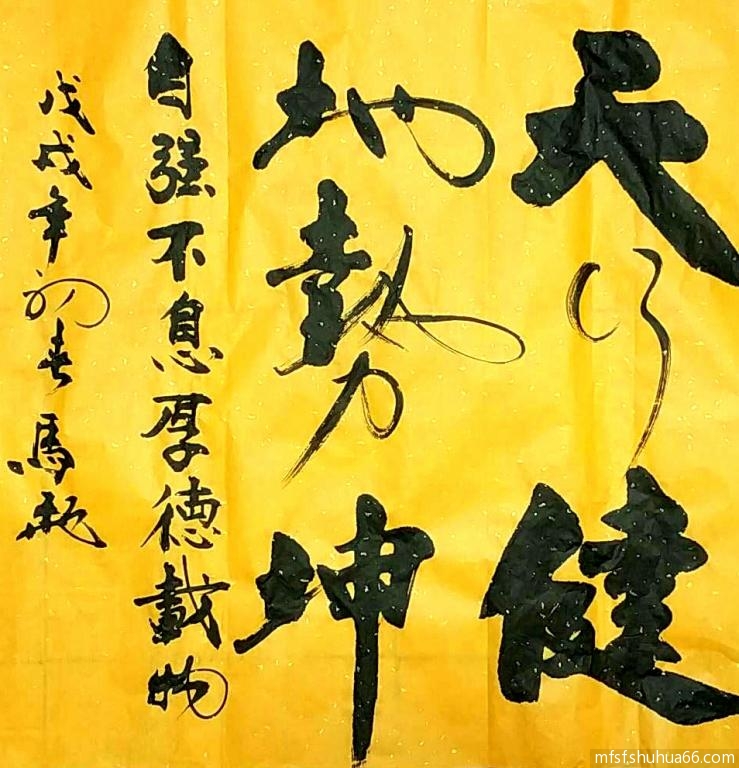 天行健
地勢坤
自强不息厚德載物
戊戌年初春馬
mfsfshuhua66.com